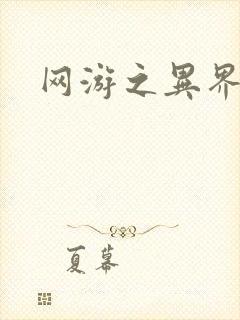 网游之異界
夏幕